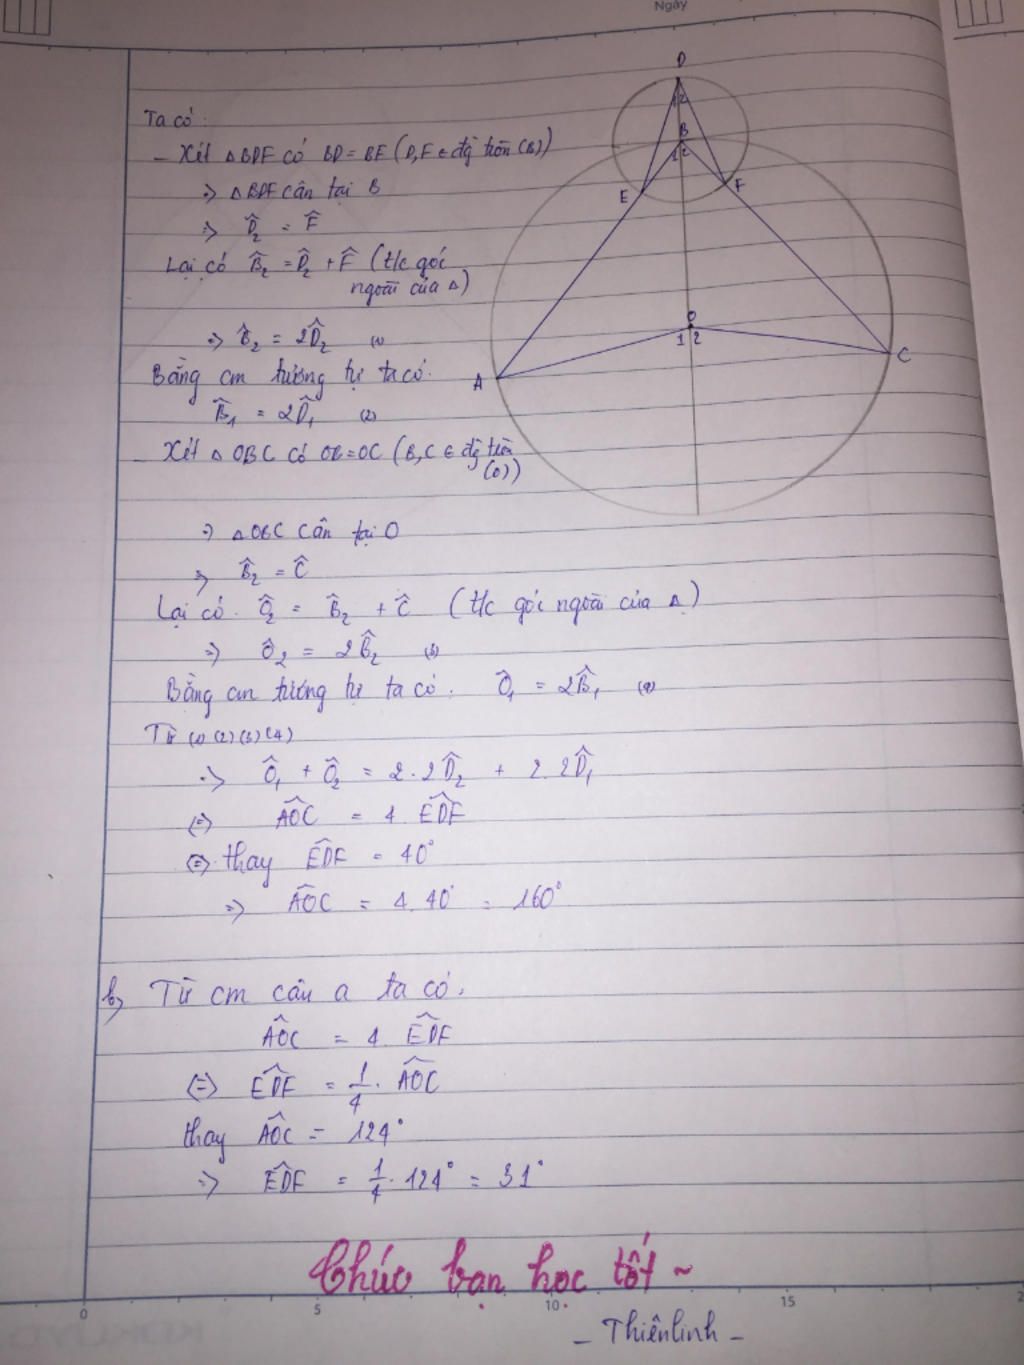 Ngày
Ta có:
- Xét △BDF có BD = BF (D, F ∈ đg tròn (B))
=> △BDF cân tại B
=> D̂₂ = F̂
Lại có B̂₂ = D̂₂ + F̂ (t/c góc
ngoài của △)
=> B̂₂ = 2D̂₂ (1)
Bằng cm tương tự ta có.
B̂₁ = 2D̂₁ (2)
- Xét △ OBC có OB = OC (B, C ∈ đg tròn
(O))
=> △OBC cân tại O
=> B̂₂ = Ĉ
Lại có. Ô₂ = B̂₂ + Ĉ (t/c góc ngoài của △)
=> Ô₂ = 2B̂₂ (3)
Bằng cm tương tự ta có. Ô₁ = 2B̂₁ (4)
Từ (1) (2) (3) (4)
=> Ô₁ + Ô₂ = 2.2D̂₂ + 2.2D̂₁
(=) AÔC = 4. ED̂F
(=) thay ED̂F = 40°
=> AÔC = 4.40° = 160°
b, Từ cm câu a ta có.
AÔC = 4 ED̂F
(=) ED̂F = 1/4 . AÔC
thay AÔC = 124°
=> ED̂F = 1/4 . 124° = 31°
Chúc bạn học tốt ~
- Thiênlinh -
D
1 2
B
1 2
E
F
O
1 2
A
C
0 5 10 15 2
KOKUYO